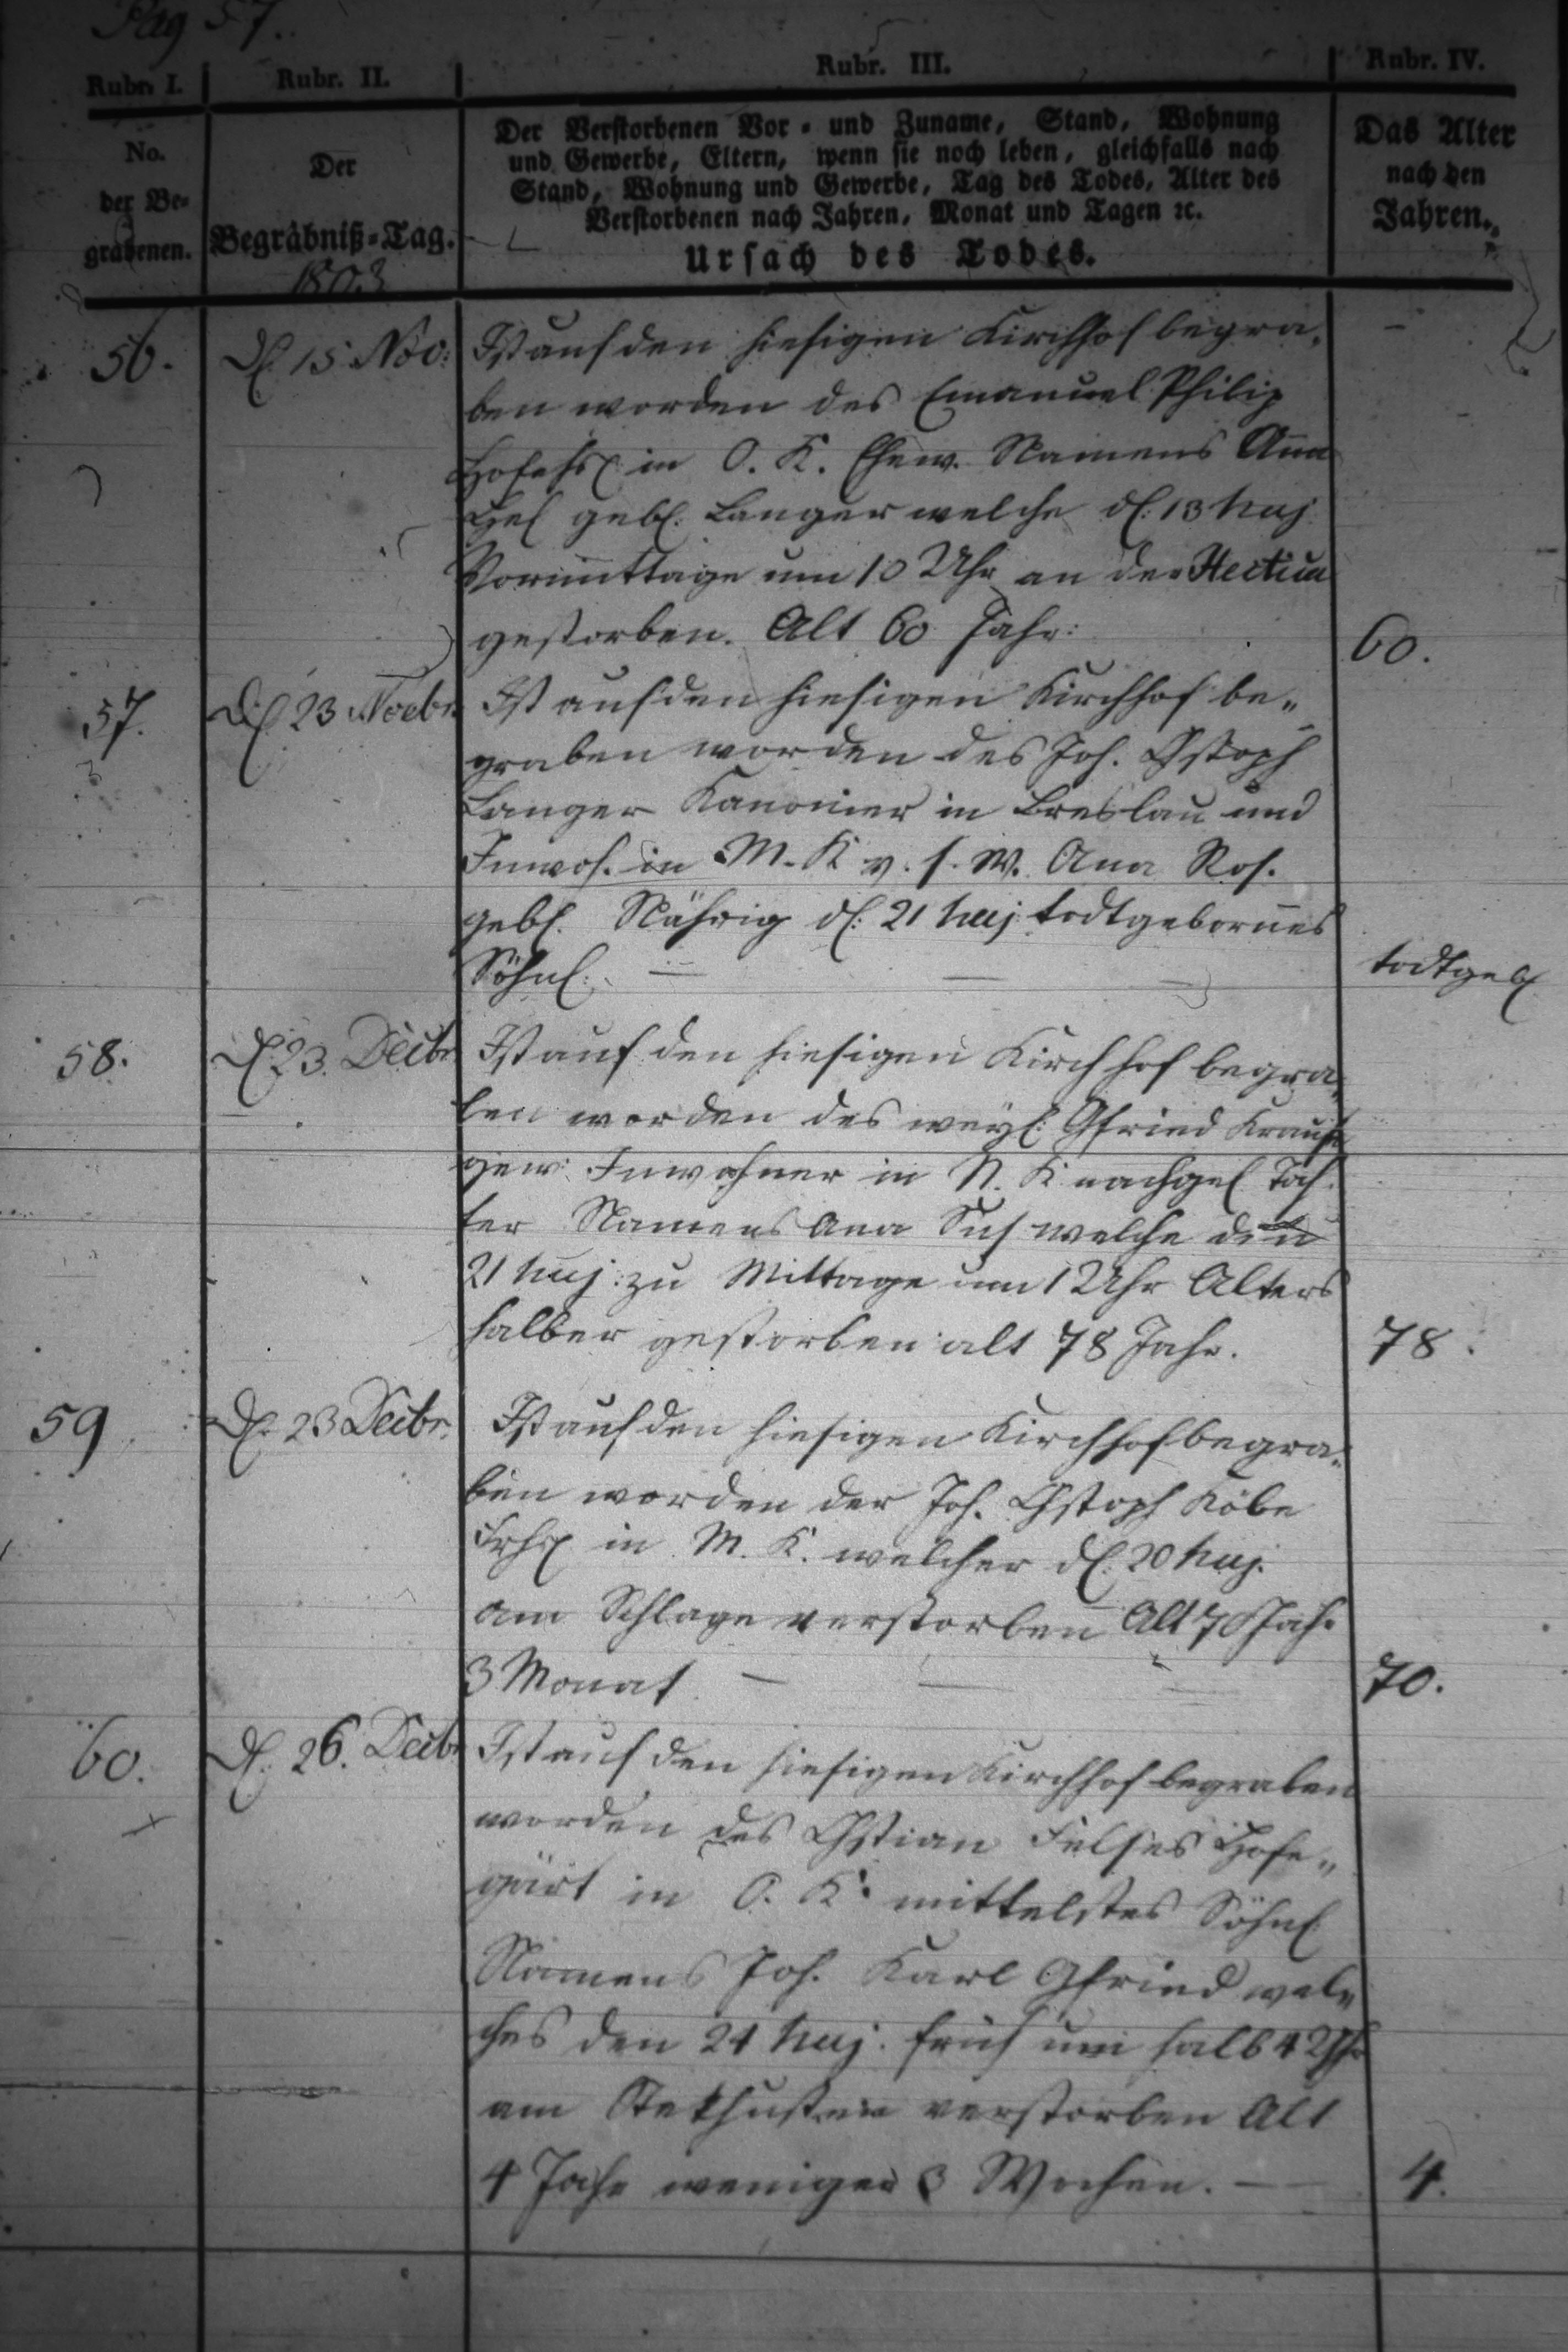 Pag 57.
Rubr. I. Rubr. II. Rubr. III. Rubr. IV.
No. der Be-grabenen.
Der Begräbniß-Tag.
1803
Der Verstorbenen Vor- und Zuname, Stand, Wohnung
und Gewerbe, Eltern, wenn sie noch leben, gleichfalls nach
Stand, Wohnung und Gewerbe, Tag des Todes, Alter des
Verstorbenen nach Jahren, Monat und Tagen ꝛc.
Ursach des Todes.
Das Alter
nach den
Jahren.
56. d. 15 Nov: Ist auf den hiesigen Kirchhof begra-
ben worden des Emanuel Philip
in O. K. Ehew. Namens Anna
geb. Langer welche d. 13 huj
Vormittage um 10 Uhr an der Hectica
gestorben. Alt 60 Jahr: 60.
57. d. 23 Novbr. Ist auf den hiesigen Kirchhof be-
graben worden des Joh. Chstoph
Langer Kanonier in Breslau und
Inwoh. in M. K v. s. W. Ana Ros.
geb. Nährig d. 21 huj. todtgebornes
Söhnl. todtgeb
58. d. 23. Decbr Ist auf den hiesigen Kirchhof begra-
ben worden des weyl. Gfried Krause
gew. Inwohner in N. K. nachgel. Toch-
ter Namens Ana Sus welche den
21 huj. zu Mittage um 1 Uhr Alters
halber gestorben alt 78 Jahr. 78.
59 d. 23 Decbr. Ist auf den hiesigen Kirchhof begra-
ben worden der Joh. Chstoph Köbe
in M. K. welcher d. 20 huj.
am Schlage verstorben Alt 70 Jahr
3 Monat. 70.
60. d. 26. Decbr Ist auf den hiesigen Kirchhof begraben
worden des Chstian Hofe-
gärt in O. K. mittelstes Söhnl
Namens Joh. Karl Gfried wel-
ches den 24 huj. früh um halb 4 Uhr
am Stekhusten verstorben Alt
4 Jahr weniger 3 Wochen. 4.